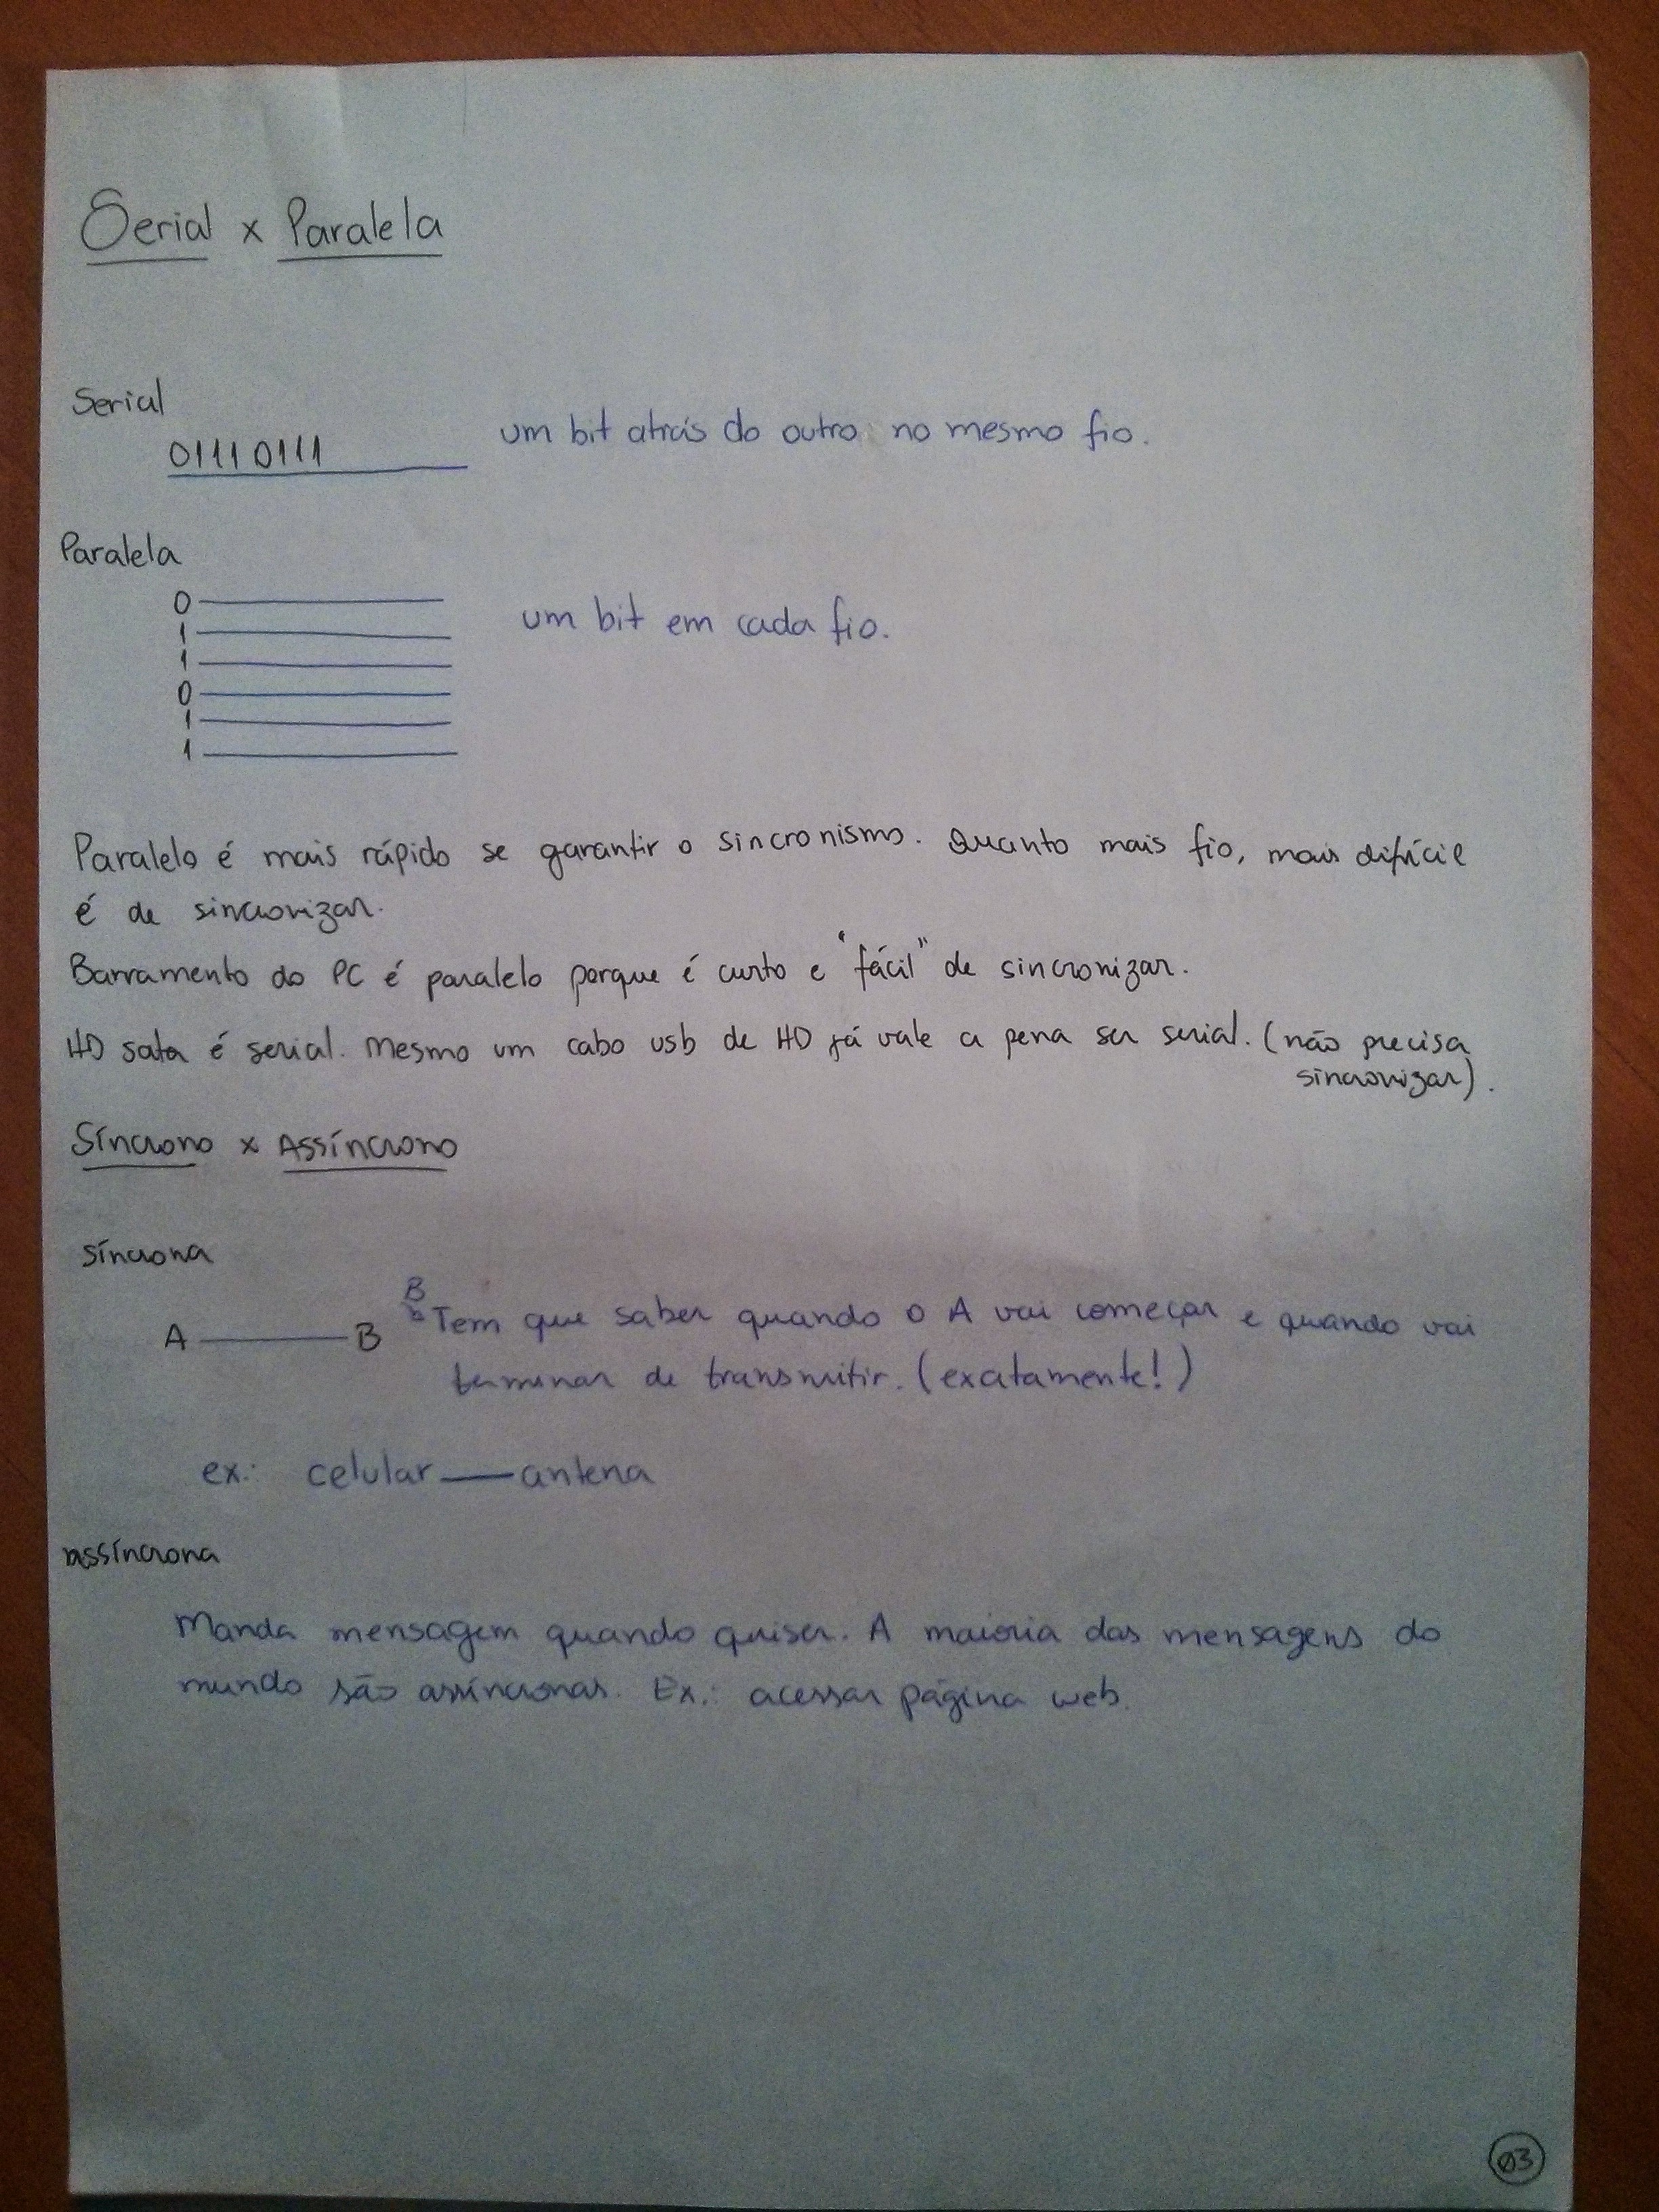 Serial x Paralela
Serial
01110111
um bit atrás do outro no mesmo fio.
Paralela
0
1
1
0
1
1
um bit em cada fio.
Paralelo é mais rápido se garantir o sincronismo. Quanto mais fio, mais difícil
é de sincronizar.
Barramento do PC é paralelo porque é curto e "fácil" de sincronizar.
HD sata é serial. Mesmo um cabo usb de HD já vale a pena ser serial. (não precisa
sincronizar).
Síncrono x Assíncrono
síncrona
A B
B
Tem que saber quando o A vai começar e quando vai
terminar de transmitir. (exatamente!)
ex.: celular — antena
assíncrona
Manda mensagem quando quiser. A maioria das mensagens do
mundo são assíncronas. Ex.: acessar página web.
03